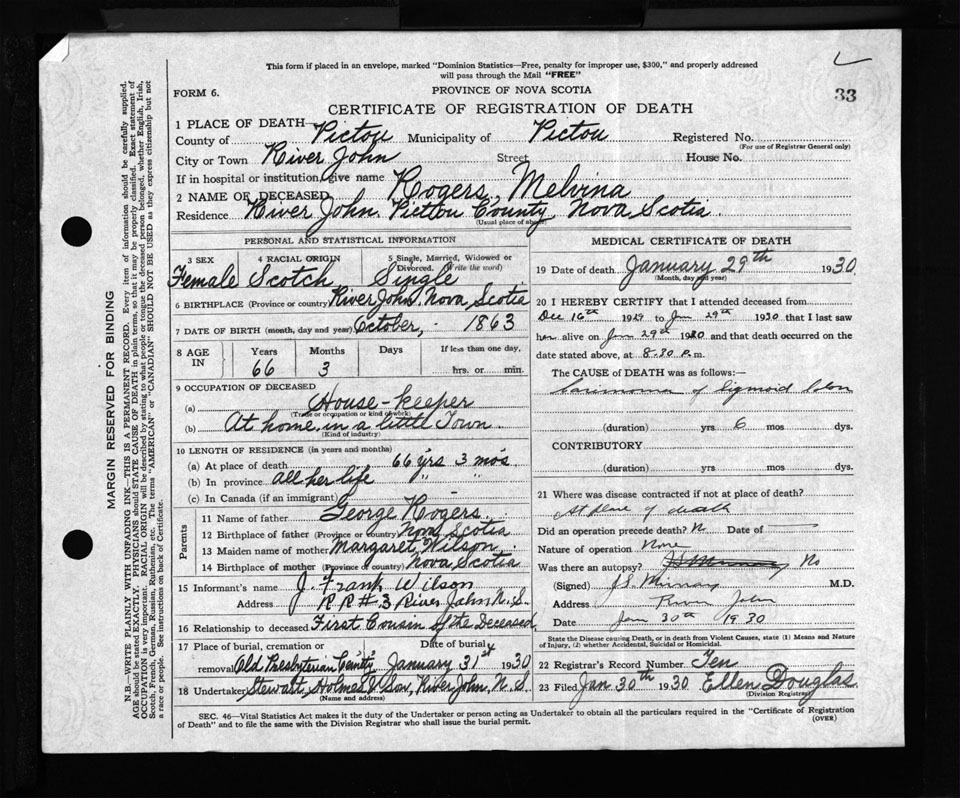 This form if placed in an envelope, marked "Dominion Statistics—Free, penalty for improper use, $300," and properly addressed
will pass through the Mail "FREE"
33
FORM 6.
PROVINCE OF NOVA SCOTIA
CERTIFICATE OF REGISTRATION OF DEATH
1 PLACE OF DEATH
County of Pictou Municipality of Pictou Registered No.
(For use of Registrar General only)
City or Town River John Street House No.
If in hospital or institution, give name
2 NAME OF DECEASED Rogers, Melvina
Residence River John Pictou County, Nova Scotia.
(Usual place of abode)
PERSONAL AND STATISTICAL INFORMATION
3 SEX 4 RACIAL ORIGIN 5 Single, Married, Widowed or
Divorced. (Write the word)
Female Scotch Single
6 BIRTHPLACE (Province or country) River John, Nova Scotia
7 DATE OF BIRTH (month, day and year) October, - 1863
8 AGE IN Years Months Days If less than one day,
66 3 hrs. or min.
9 OCCUPATION OF DECEASED
(a) House-keeper
(Trade or occupation or kind of work)
(b) At home, in a little Town.
(Kind of industry)
10 LENGTH OF RESIDENCE (in years and months)
(a) At place of death 66 yrs 3 mos
(b) In province all her life " "
(c) In Canada (if an immigrant)
Parents
11 Name of father George Rogers
12 Birthplace of father (Province or country) Nova Scotia
13 Maiden name of mother Margaret Wilson
14 Birthplace of mother (Province or country) Nova Scotia
15 Informant's name J. Frank Wilson
Address R R # 3 River John N. S.
16 Relationship to deceased First Cousin of the Deceased
17 Place of burial, cremation or Date of burial
removal Old Presbyterian January 31st 1930
18 Undertaker Stewart Holmes & Son, River John, N. S.
(Name and address)
MEDICAL CERTIFICATE OF DEATH
19 Date of death January 29th 1930
(Month, day and year)
20 I HEREBY CERTIFY that I attended deceased from
Dec 16th 1929 to Jan 29th 1930 that I last saw
her alive on Jan 29th 1930 and that death occurred on the
date stated above, at 8-30 P.m.
The CAUSE of DEATH was as follows:—
Carcinoma of Sigmoid Colon
(duration) yrs 6 mos dys.
CONTRIBUTORY
(duration) yrs mos dys.
21 Where was disease contracted if not at place of death?
At place of death
Did an operation precede death? N Date of
Nature of operation None
Was there an autopsy? No
(Signed) J.S. Murray M.D.
Address River John
Date Jan 30th 1930
State the Disease causing Death, or in death from Violent Causes, state (1) Means and Nature
of Injury, (2) whether Accidental, Suicidal or Homicidal.
22 Registrar's Record Number Ten
23 Filed Jan 30th 1930 Ellen Douglas
(Division Registrar)
SEC. 46—Vital Statistics Act makes it the duty of the Undertaker or person acting as Undertaker to obtain all the particulars required in the "Certificate of Registration
of Death" and to file the same with the Division Registrar who shall issue the burial permit.
(OVER)
MARGIN RESERVED FOR BINDING
N.B.—WRITE PLAINLY WITH UNFADING INK—THIS IS A PERMANENT RECORD. Every item of information should be carefully supplied.
AGE should be stated EXACTLY. PHYSICIANS should STATE CAUSE OF DEATH in plain terms, so that it may be properly classified. Exact statement of
OCCUPATION is very important. RACIAL ORIGIN will be described by stating to what people or tongue the deceased person belonged, whether English, Irish,
Scotch, French, German, Russian, Ruthenian, etc. The terms "AMERICAN" or "CANADIAN" SHOULD NOT BE USED as they express citizenship but not
a race or people. See instructions on back of Certificate.